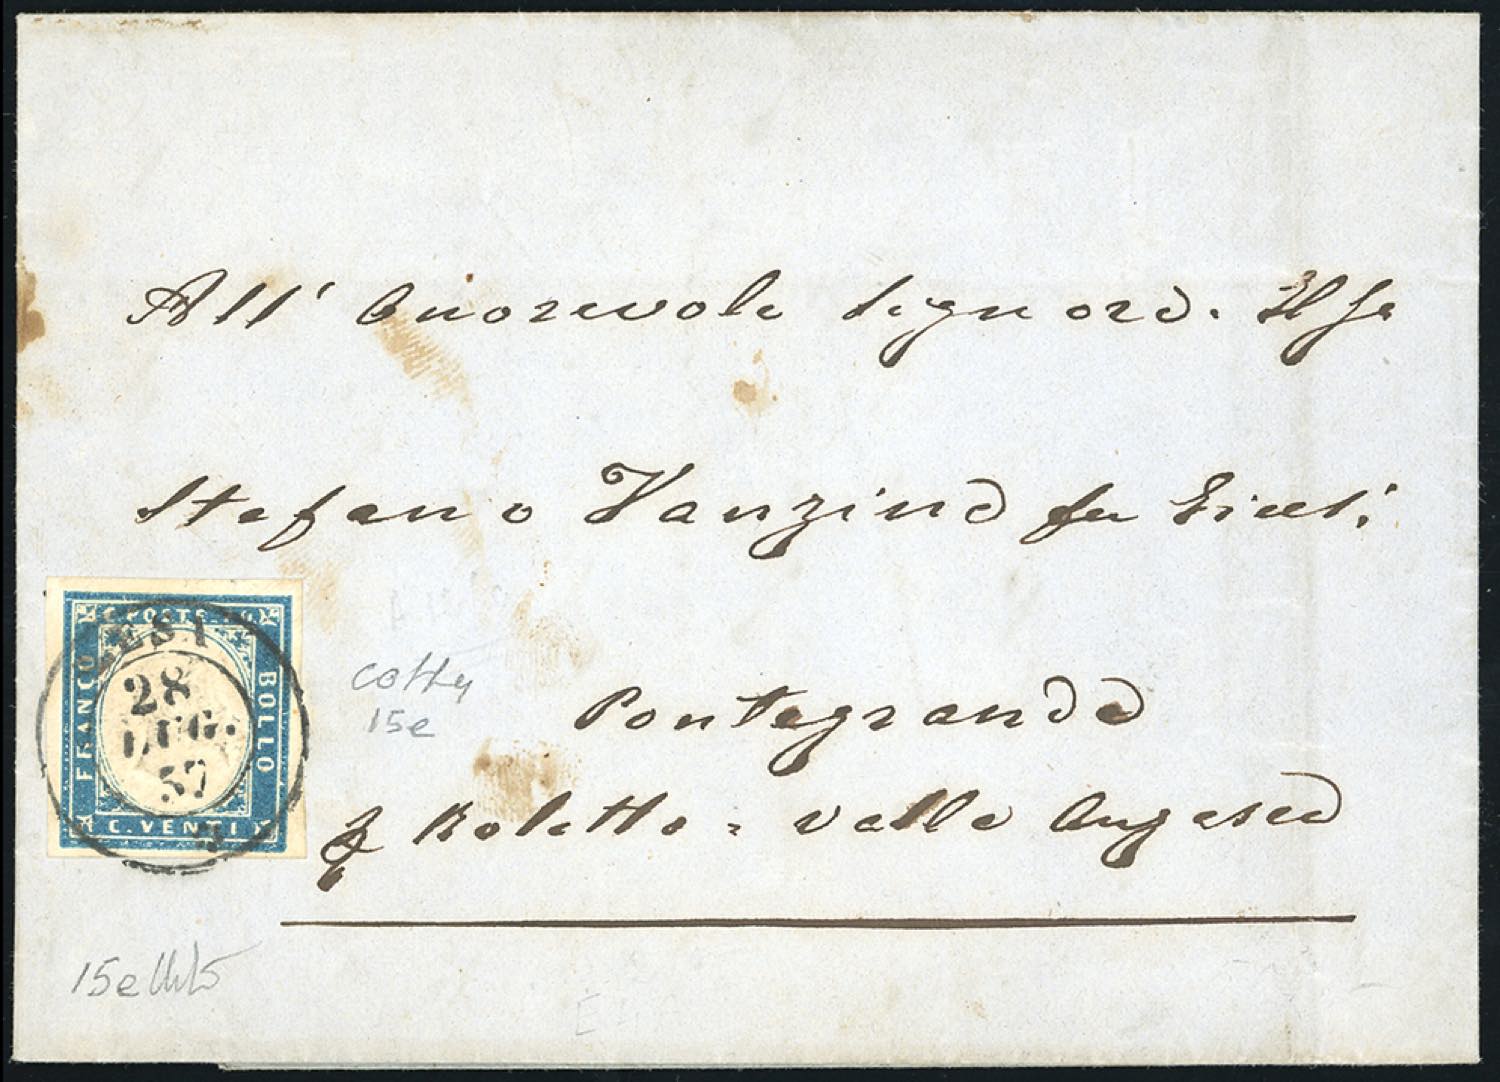 All' Onorevole Signore. Il Sr
Stefano Vanzina fu
Pontegrande
p Roletto = valle Anzasca
C. POSTE
FRANCO
BOLLO
C. VENTI
LESA
28
LUG.
57
cotty
15e
15e